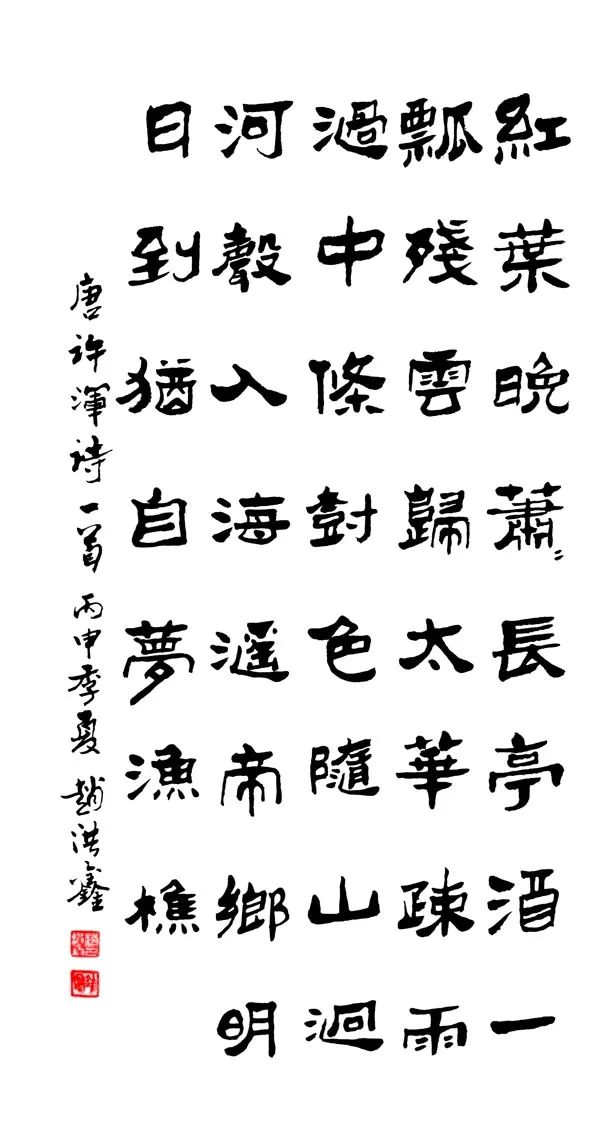 紅葉晚蕭〻長亭酒一
瓢殘雲歸太華疎雨
過中條樹色隨山迥
河聲入海遥帝鄉明
日到猶自夢漁樵
唐许渾诗一首丙申季夏趙洪鑫